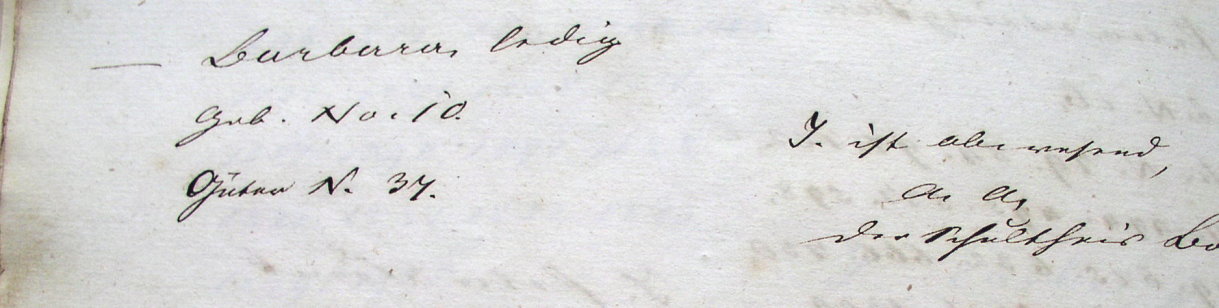 — Barbara, ledig
Geb. No. 10.
Güter N. 37.
T. ist abwesend,
a. a.
der Schultheis Bo